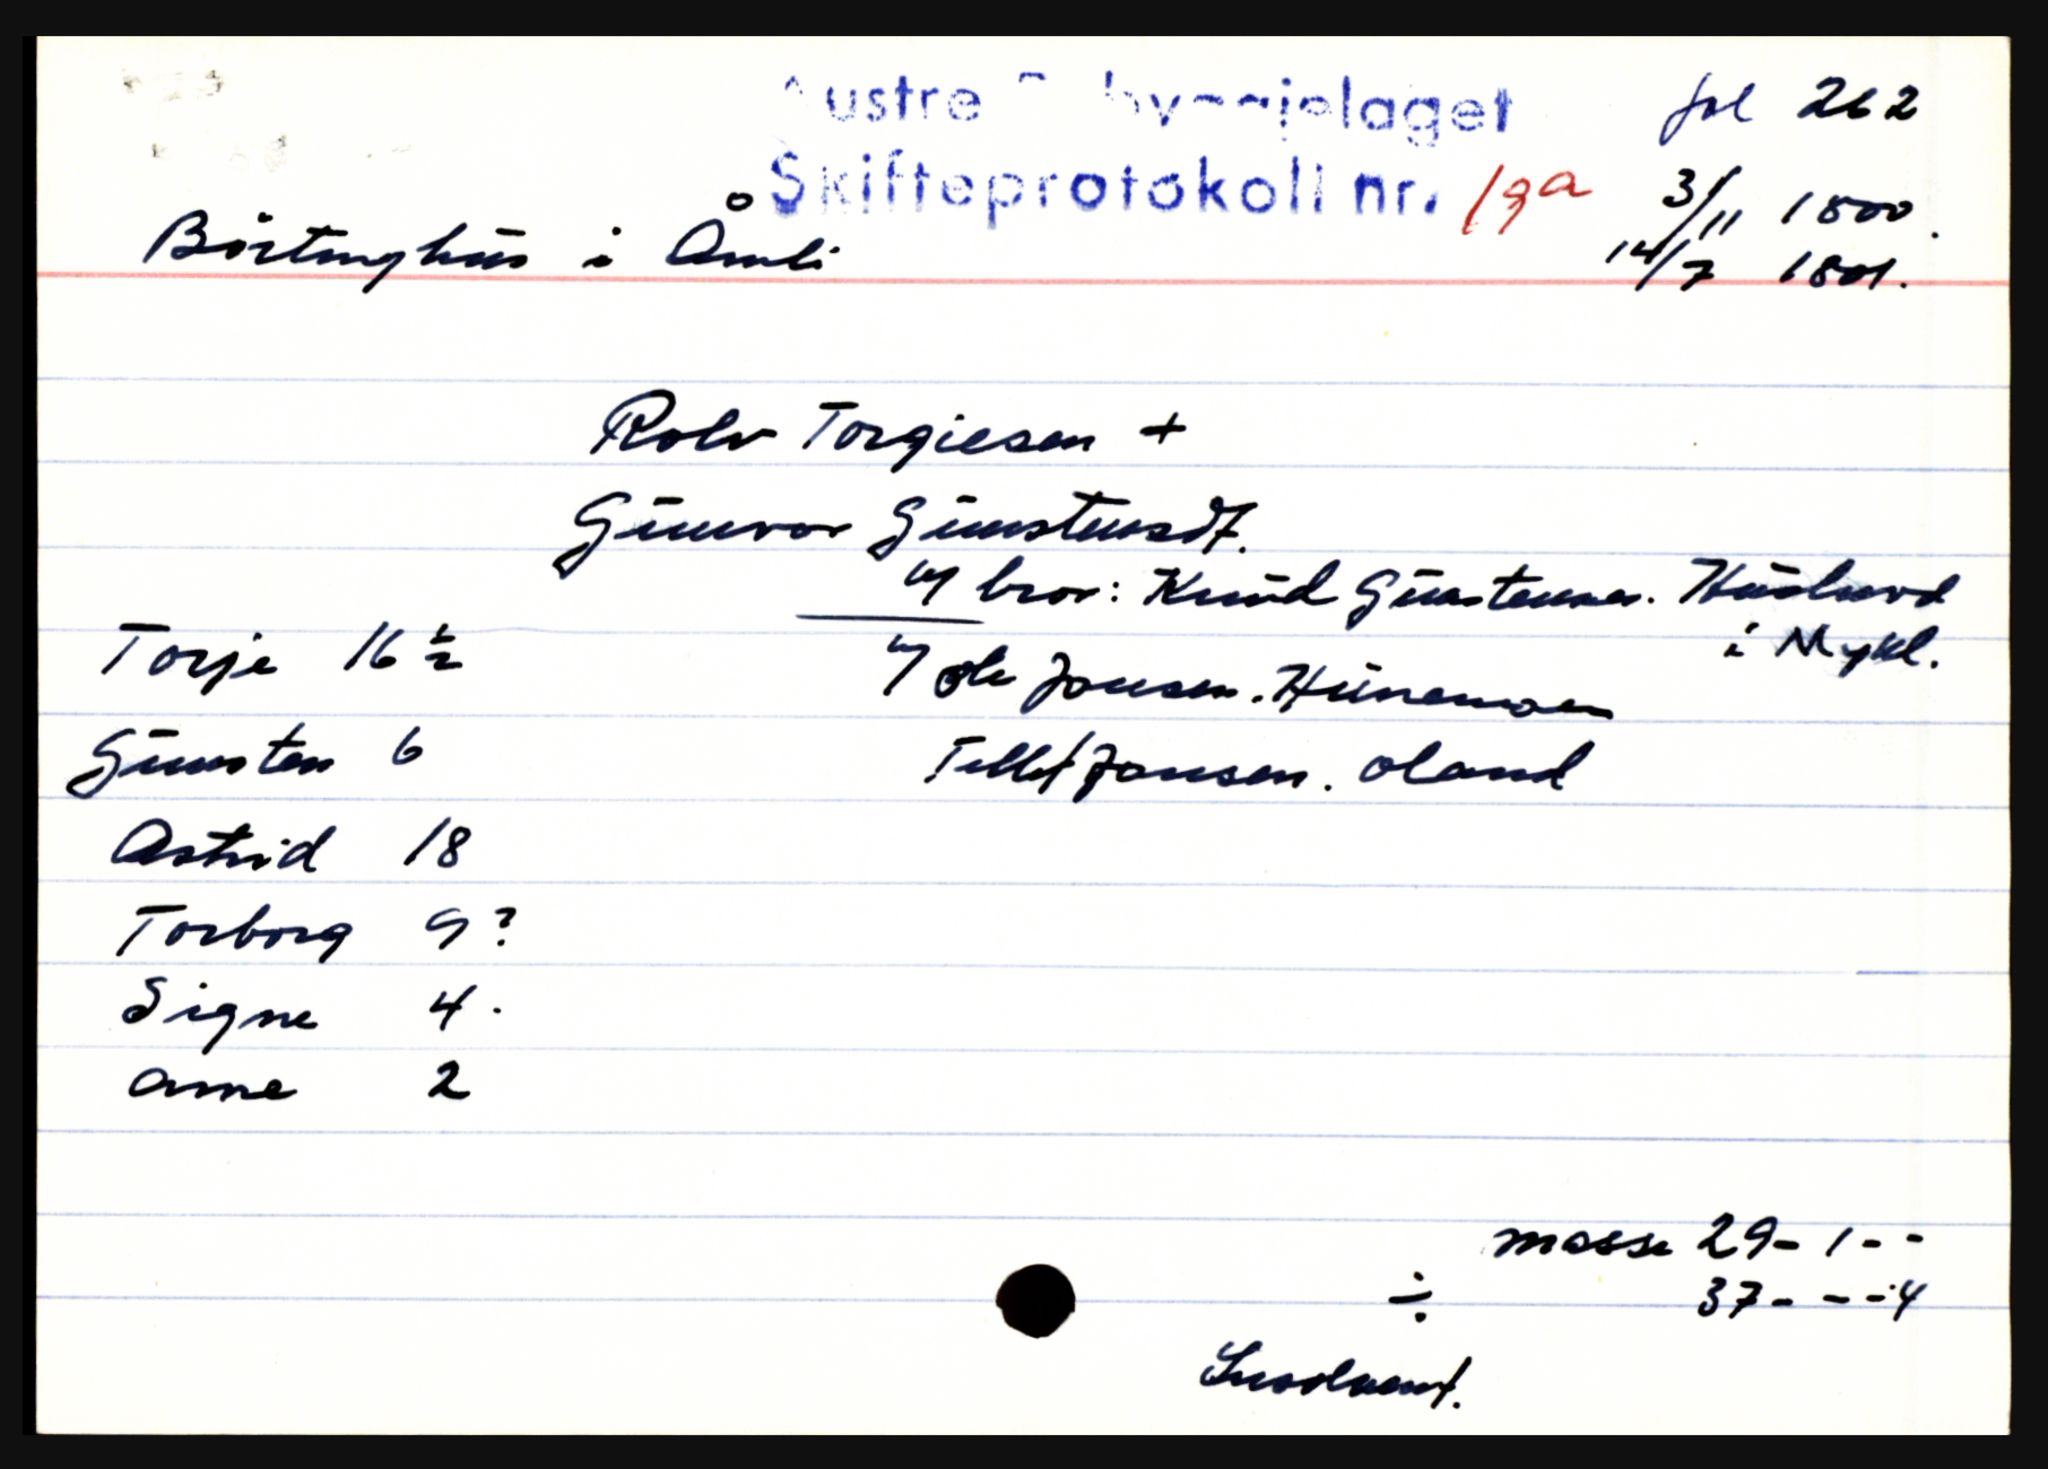 Austre Råbyggjelaget fol 262
Skifteprotokoll nr. 19a 3/11 1800.
Børtinghus i Åmli 14/7 1801.
Rolv Torgiesen +
Gunvor Gunstensdt.
w/ bror: Knud Gunstensen. Huslund
Torje 16 1/2 w/ Ole Jonsen. Hunemoen i Mykl.
Gunsten 6 Tellef Jonsen. Oland
Astrid 18
Torborg 9?
Signe 4.
Arne 2
masse 29 - 1 - -
÷ 37 - - - 4
Insolvent.